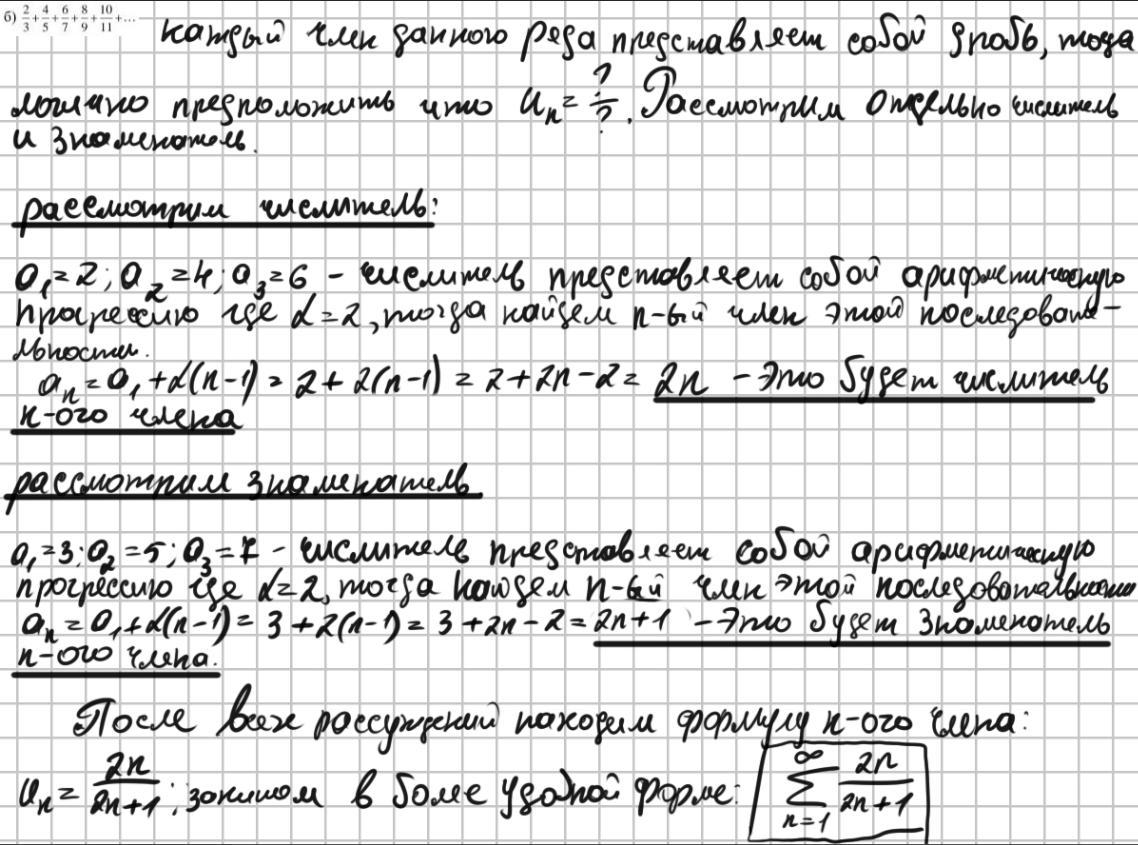 б) 2/3 + 4/5 + 6/7 + 8/9 + 10/11 + ... каждый член данного ряда представляет собой дробь, тогда
можно предположить что Uₙ = ?/?. Рассмотрим отдельно числитель
и знаменатель.
рассмотрим числитель:
a₁=2; a₂=4; a₃=6 - числитель представляет собой арифметическую
прогрессию где d=2, тогда найдем n-ый член этой последовате-
льности.
aₙ = a₁ + d(n-1) = 2 + 2(n-1) = 2 + 2n - 2 = 2n - это будет числитель
n-ого члена
рассмотрим знаменатель
a₁=3; a₂=5; a₃=7 - числитель представляет собой арифметическую
прогрессию где d=2, тогда найдем n-ый член этой последовательности
aₙ = a₁ + d(n-1) = 3 + 2(n-1) = 3 + 2n - 2 = 2n+1 - это будет знаменатель
n-ого члена.
После всех рассуждений находим формулу n-ого члена:
Uₙ = 2n/(2n+1); запишем в более удобной форме: ∑_{n=1}^{∞} 2n/(2n+1)